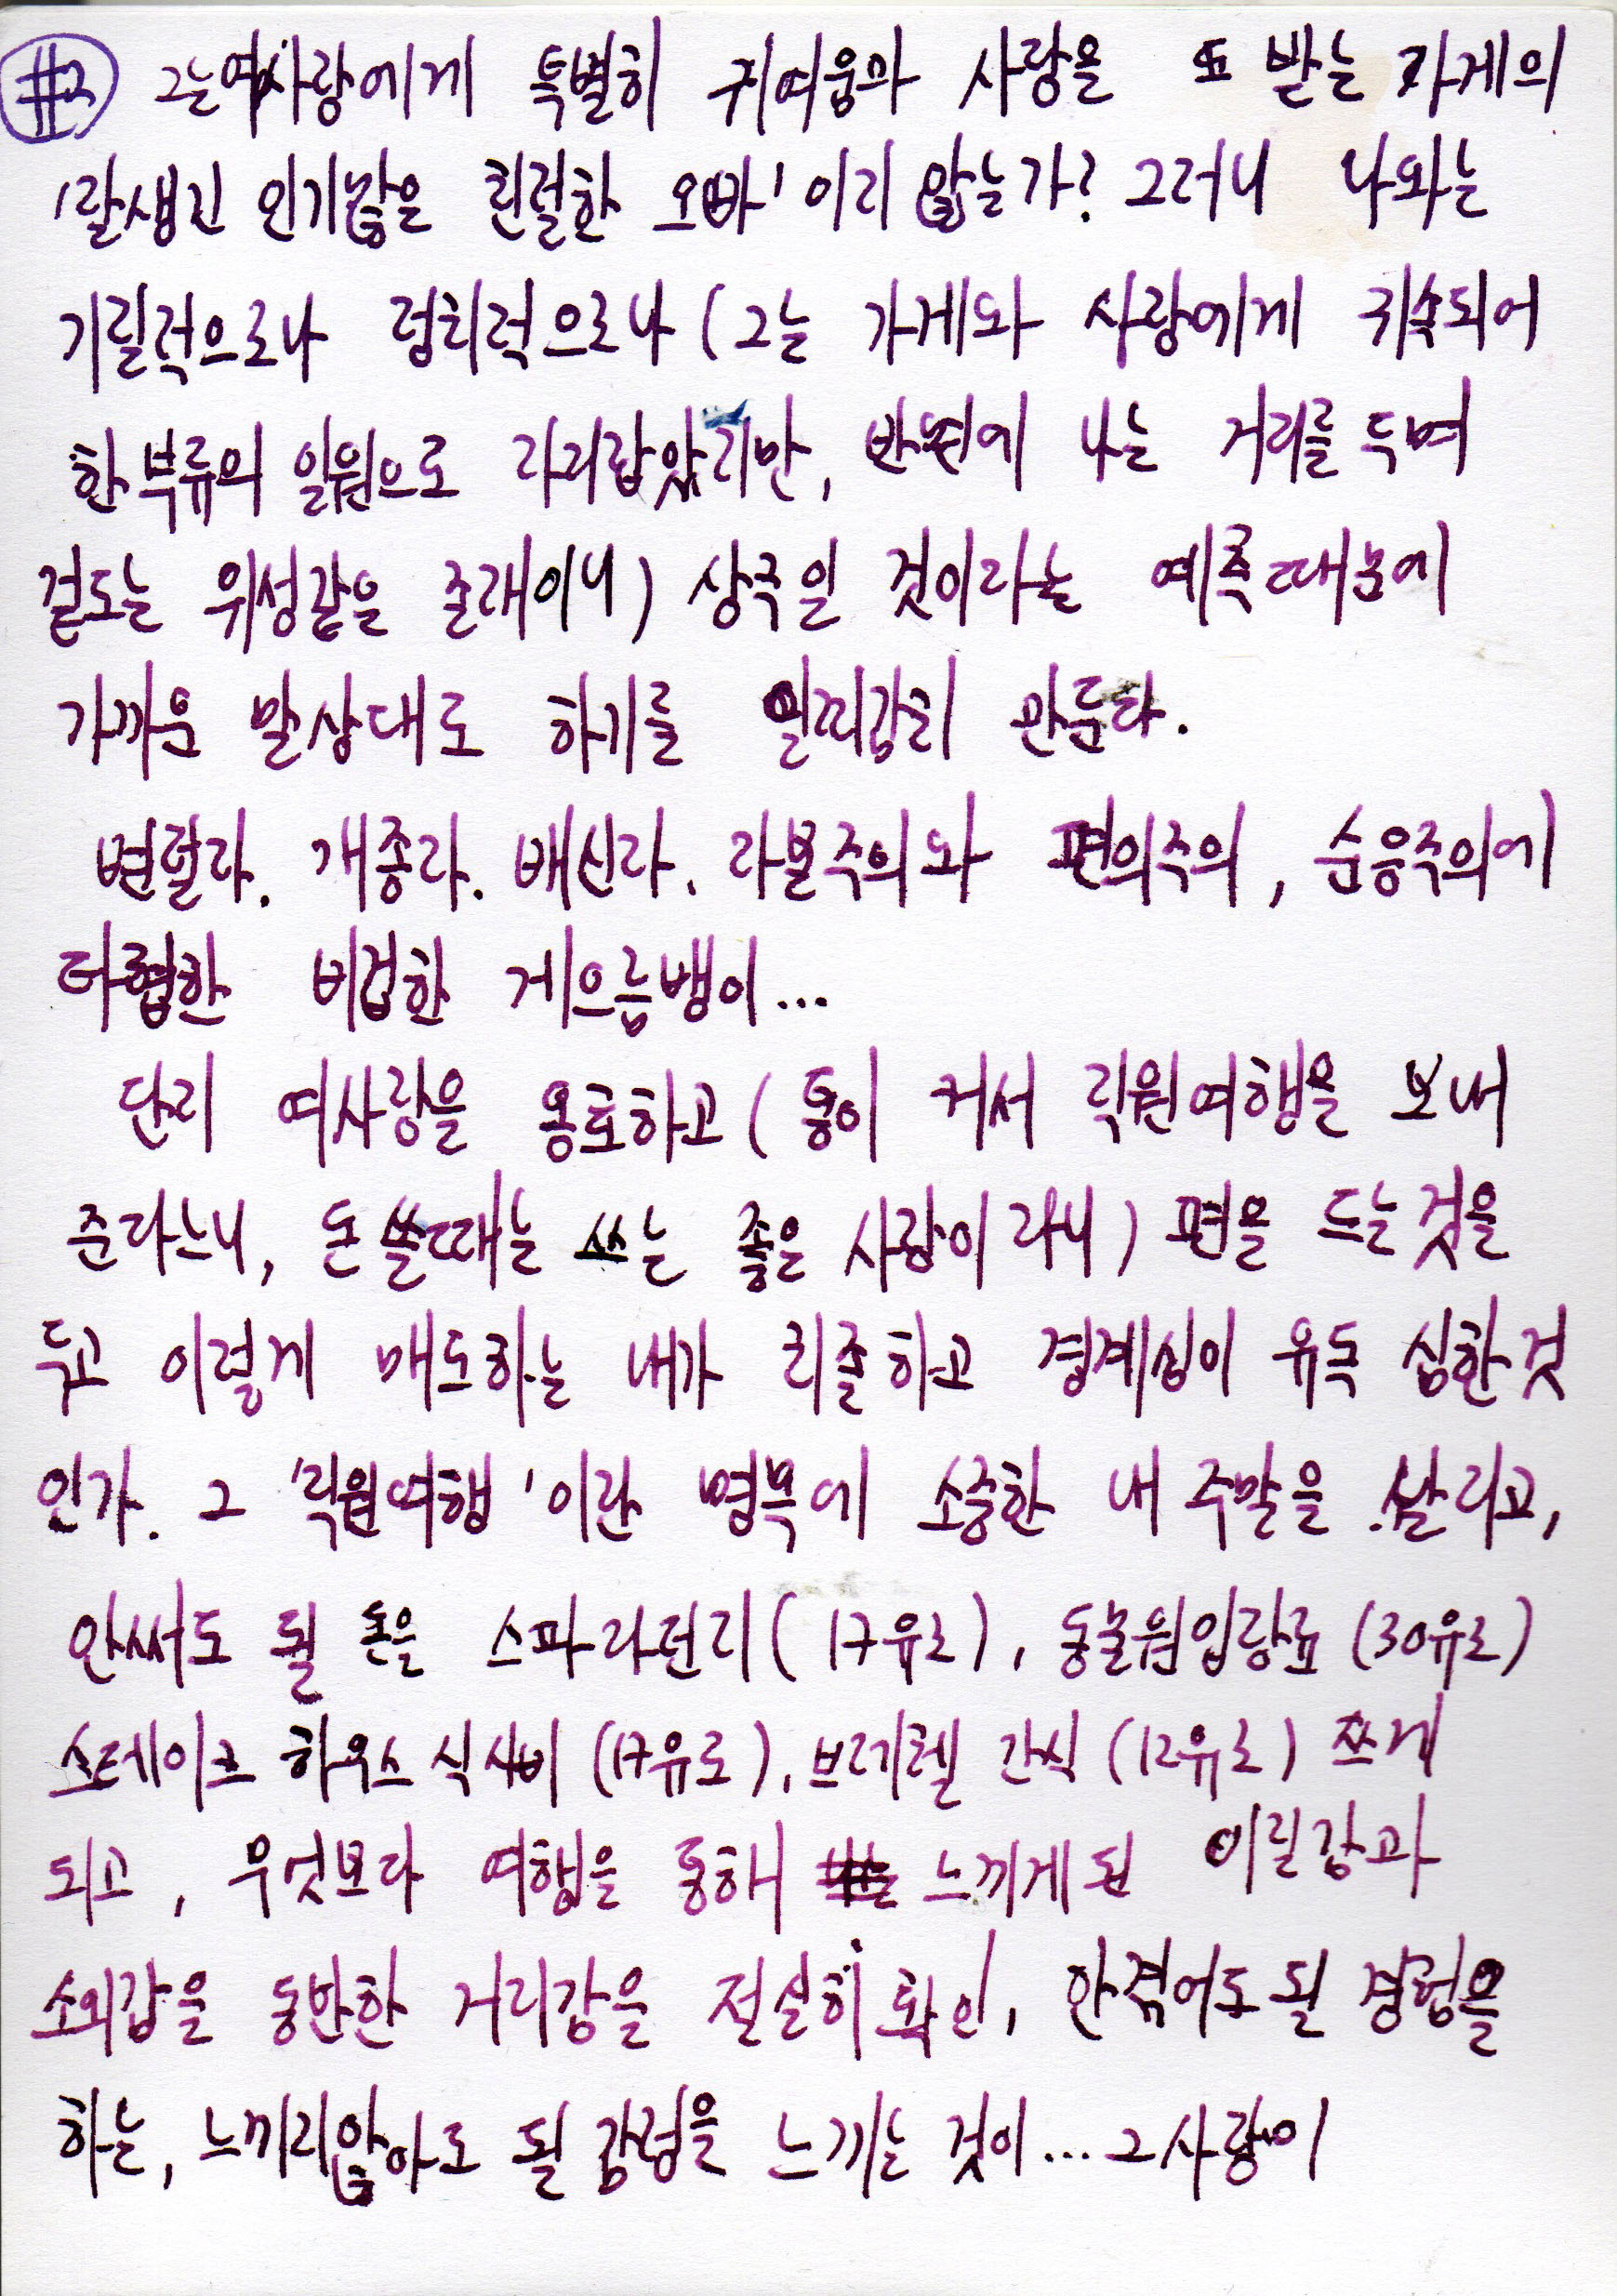 #2 그는 여사장에게 특별히 귀여움과 사랑을 또 받는 가게의
'잘생긴 인기많은 친절한 오빠' 이지 않는가? 그러니 나와는
기질적으로나 정치적으로나 (그는 가게와 사장에게 귀속되어
한 부류의 일원으로 자리잡았지만, 반면에 나는 거리를 두며
겉도는 위성같은 존재이니) 상극일 것이라는 예측때문에
가까운 말상대로 하기를 일찌감치 관둔다.
변절자. 개종자. 배신자. 자본주의와 편의주의, 순응주의에
타협한 비겁한 게으름뱅이...
단지 여사장을 옹호하고 (통이 커서 직원여행을 보내
준다느니, 돈 쓸때는 쓰는 좋은 사람이라니) 편을 드는 것을
두고 이렇게 매도하는 내가 치졸하고 경계심이 유독 심한것
인가. 그 '직원여행'이란 명목에 소중한 내 주말을 날리고,
안써도 될 돈을 스파라던지 (17유로), 동물원입장료 (30유로)
스테이크 하우스 식사비 (17유로), 브레첼 간식 (12유로) 쓰게
되고, 무엇보다 여행을 통해 느끼게 된 이질감과
소외감을 동반한 거리감을 절실히 확인, 안 겪어도 될 경험을
하는, 느끼지않아도 될 감정을 느끼는 것이... 그 사장이